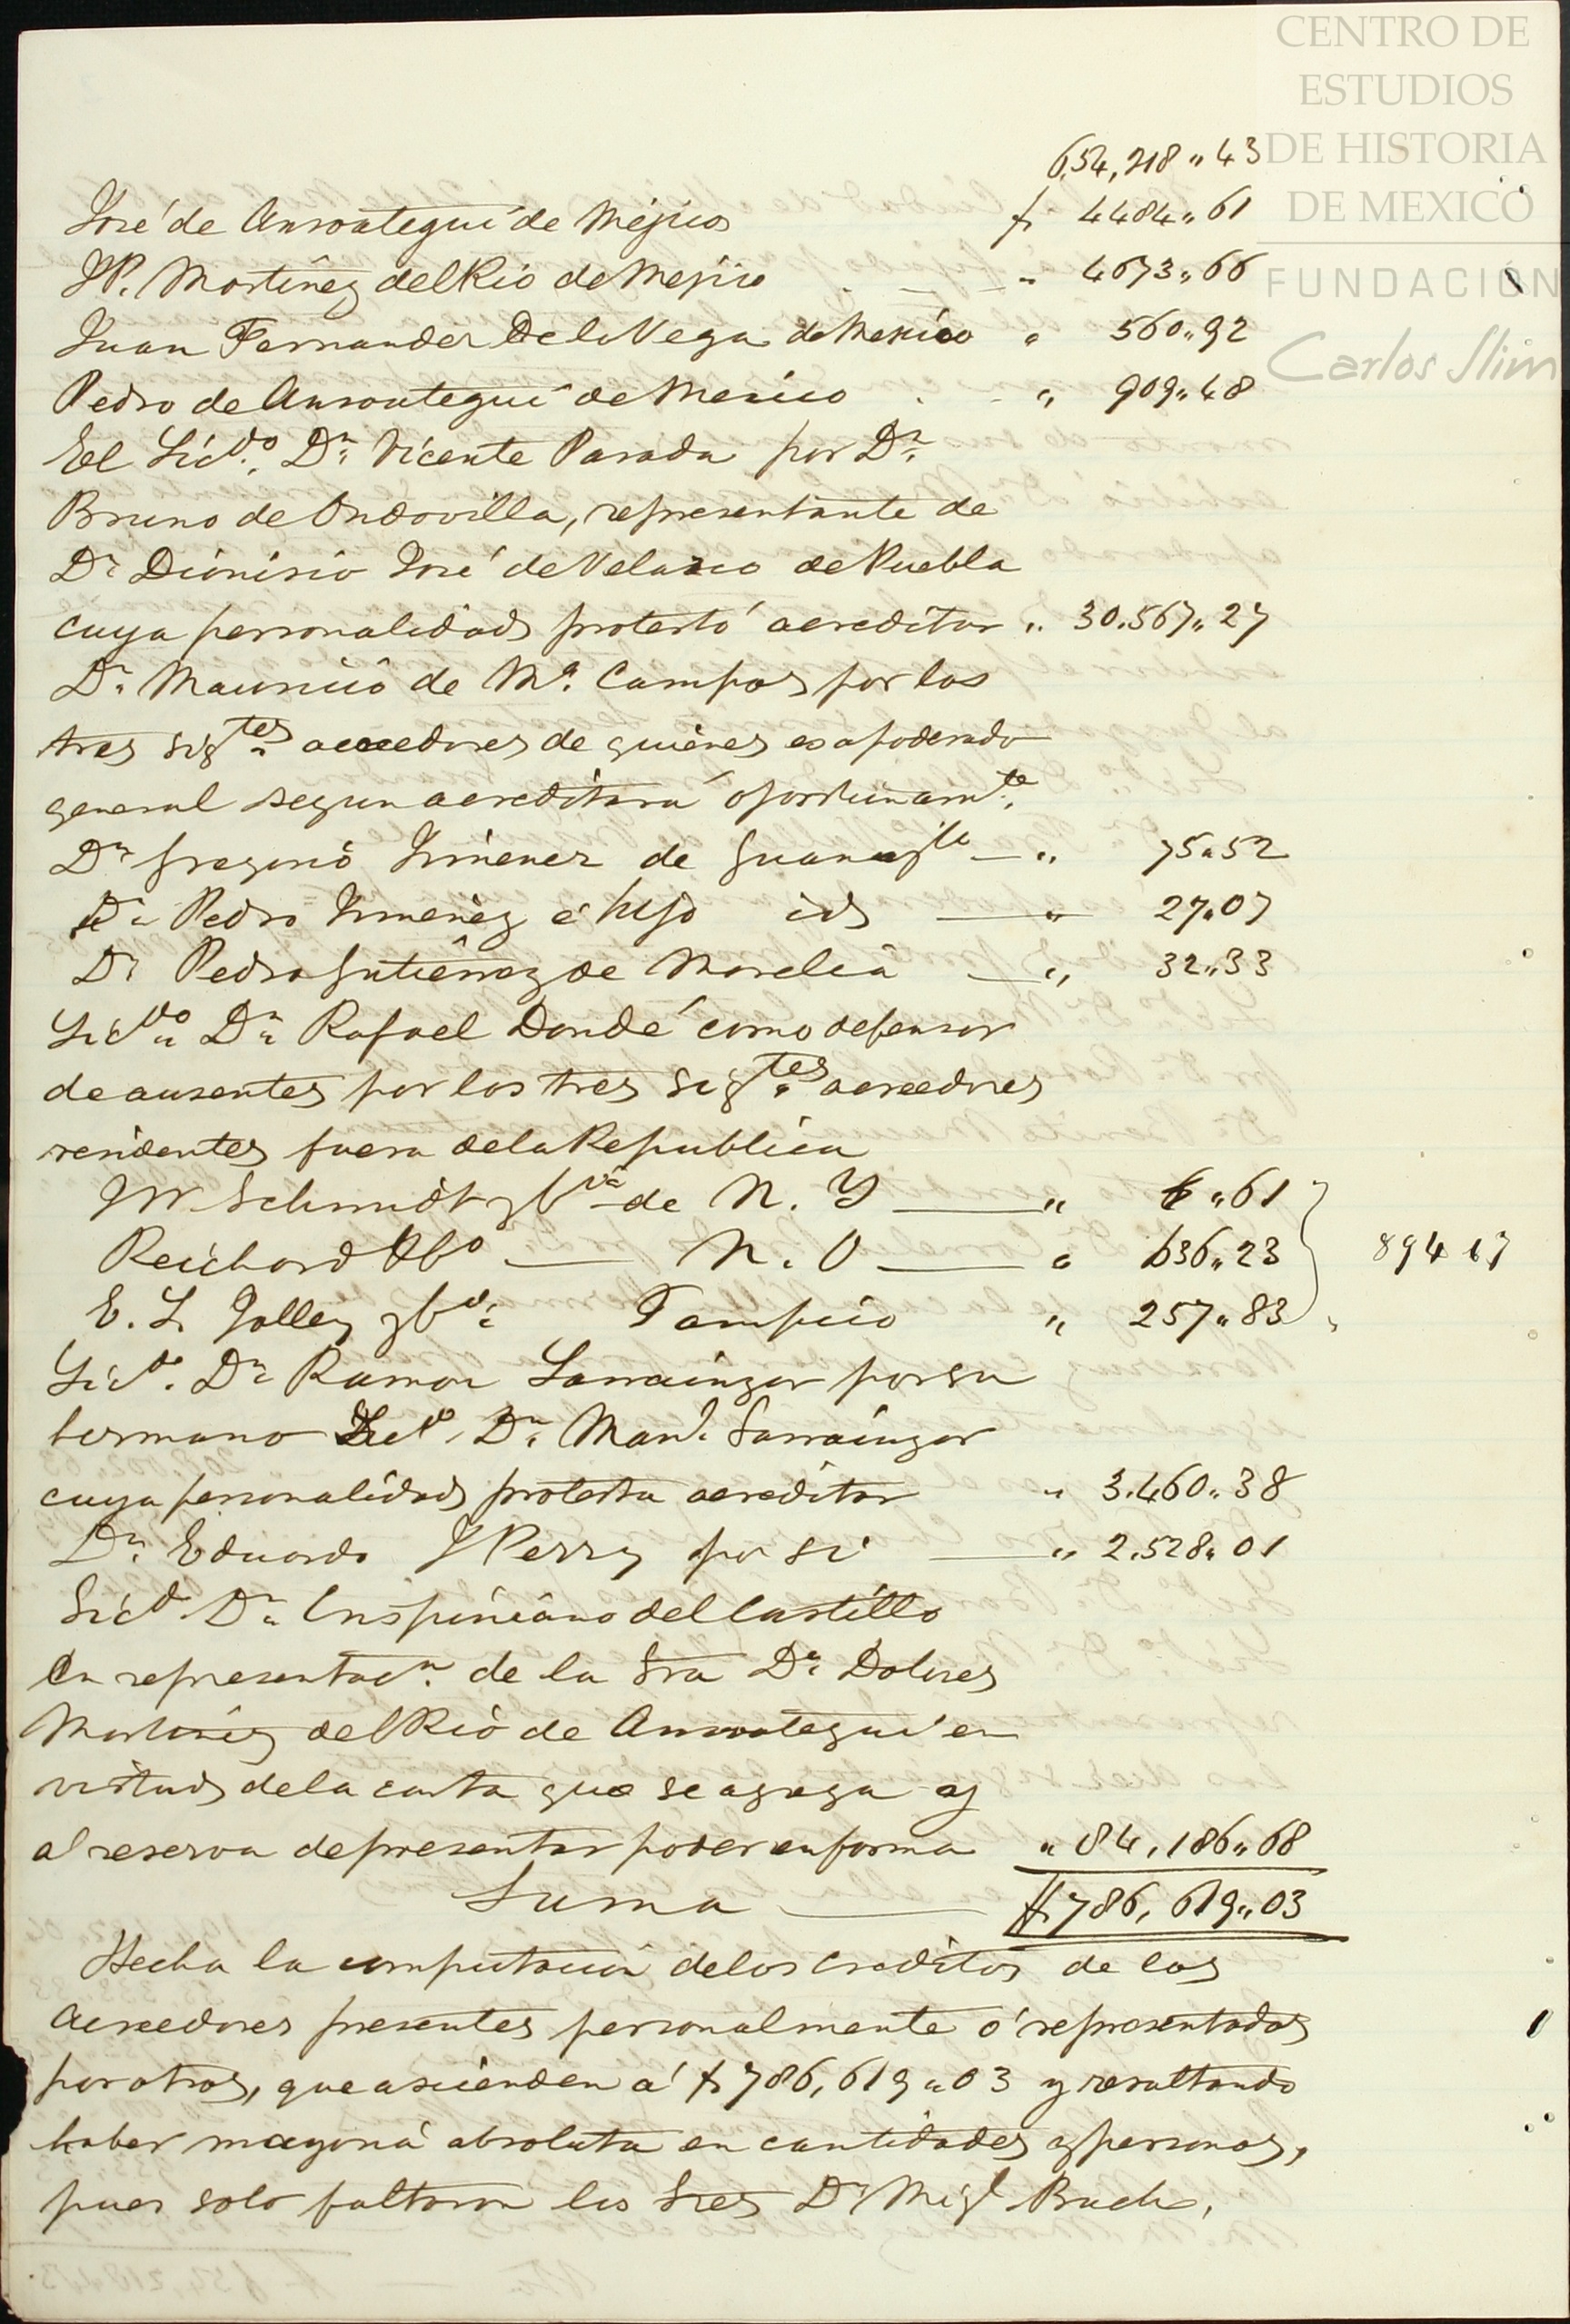 CENTRO DE
ESTUDIOS
DE HISTORIA
DE MEXICO
FUNDACIÓN
Carlos Slim
654,218 " 43
José de Ansoategui de Méjico $ 4484 " 61
J P. Martinez del Rio de Mejico " 4673 " 66
Juan Fernandez De la Vega de Mexico " 560 " 92
Pedro de Ansoategui de Mexico " 909 " 48
El Licdo. Dn. Vicente Parada por Dn.
Bruno de Ondovilla, representante de
Dn Dionisio José de Velazco de Puebla
cuya personalidad protestó acreditar " 30.567 " 27
Dn. Mauricio de Ma. Campos por los
tres sigtes. acreedores de quienes es apoderado
general segun acreditará oportunamte.
Dn Gregorio Jimenez de Guanajto — " 75 " 52
Dn Pedro Jimenez é hijo id — " 27 " 07
Dn Pedro Gutierrez de Morelia — " 32 " 33
Licdo. Dn. Rafael Dondé como defensor
de ausentes por los tres sigtes. acreedores
residentes fuera de la Republica
J W Schmidt y Ca de N. Y — " 6 " 61
Reichard — N. O — " 636 " 23 894 67
E. L Jolley y Ca. Tampico " 257 " 83
Licdo. Dn Ramon Larrainzar por su
hermano Licdo. Dn. Manl. Larrainzar
cuya personalidad protesta acreditar " 3.460 " 38
Dn. Eduardo J Perry por si — " 2.528 " 01
Licdo Dn. Crispiniano del Castillo
En representacn. de la Sra Da. Dolores
Martinez del Rio de Ansoategui en
virtud de la carta que se agrega y
al reserva de presentar poder en forma " 84,186 " 68
Suma — $ 786,619 " 03
Hecha la computacion de los creditos de los
acreedores presentes personalmente ó representados
por otros, que ascienden á $ 786,619 " 03 y resultando
haber mayoria absoluta en cantidades y personas,
pues solo faltaron los Sres Dn Migl Buch,